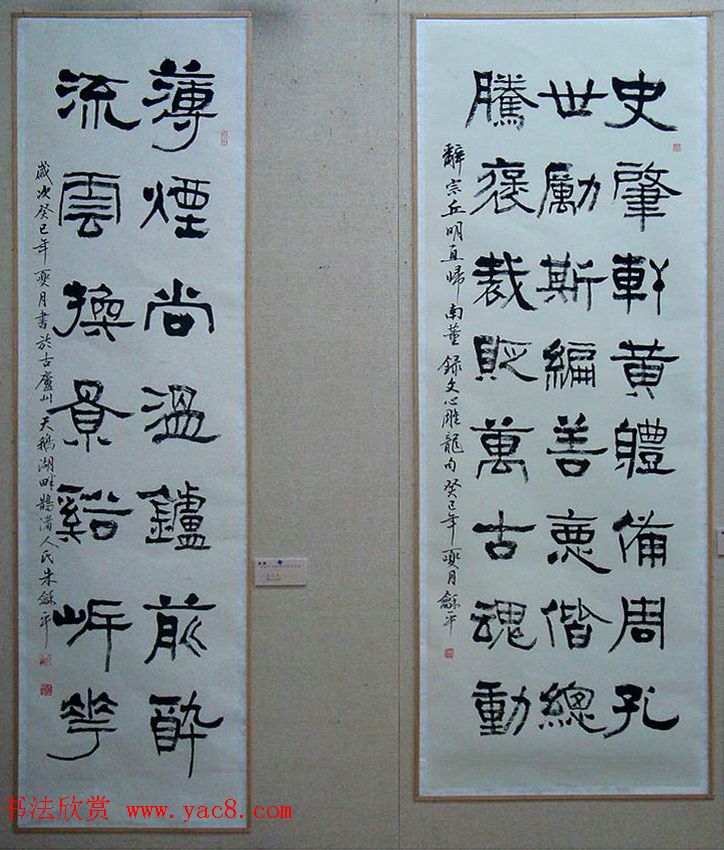 史肇軒黄體備周孔
世勵斯編善惡偕總
騰褒裁貶萬古魂動
辭宗丘明直歸南董 録文心雕龍句 癸巳年 月 龢平
薄煙尚溫鑪前酔
流雲換景谿岍花
歲次癸巳年 月書於古廬州天鵝湖畔鵲渚人氏朱龢平
书法欣赏 www.yac8.com